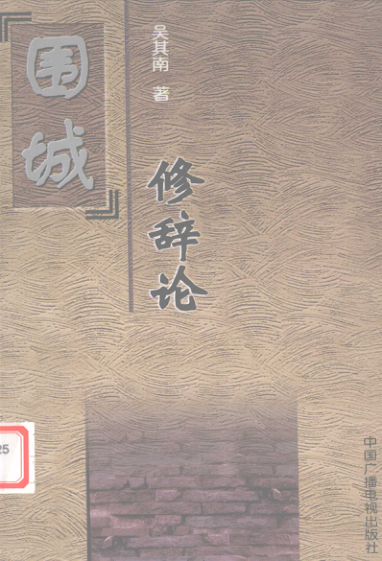 围城
修辞论
吴其南 著
中国广播电视出版社
25